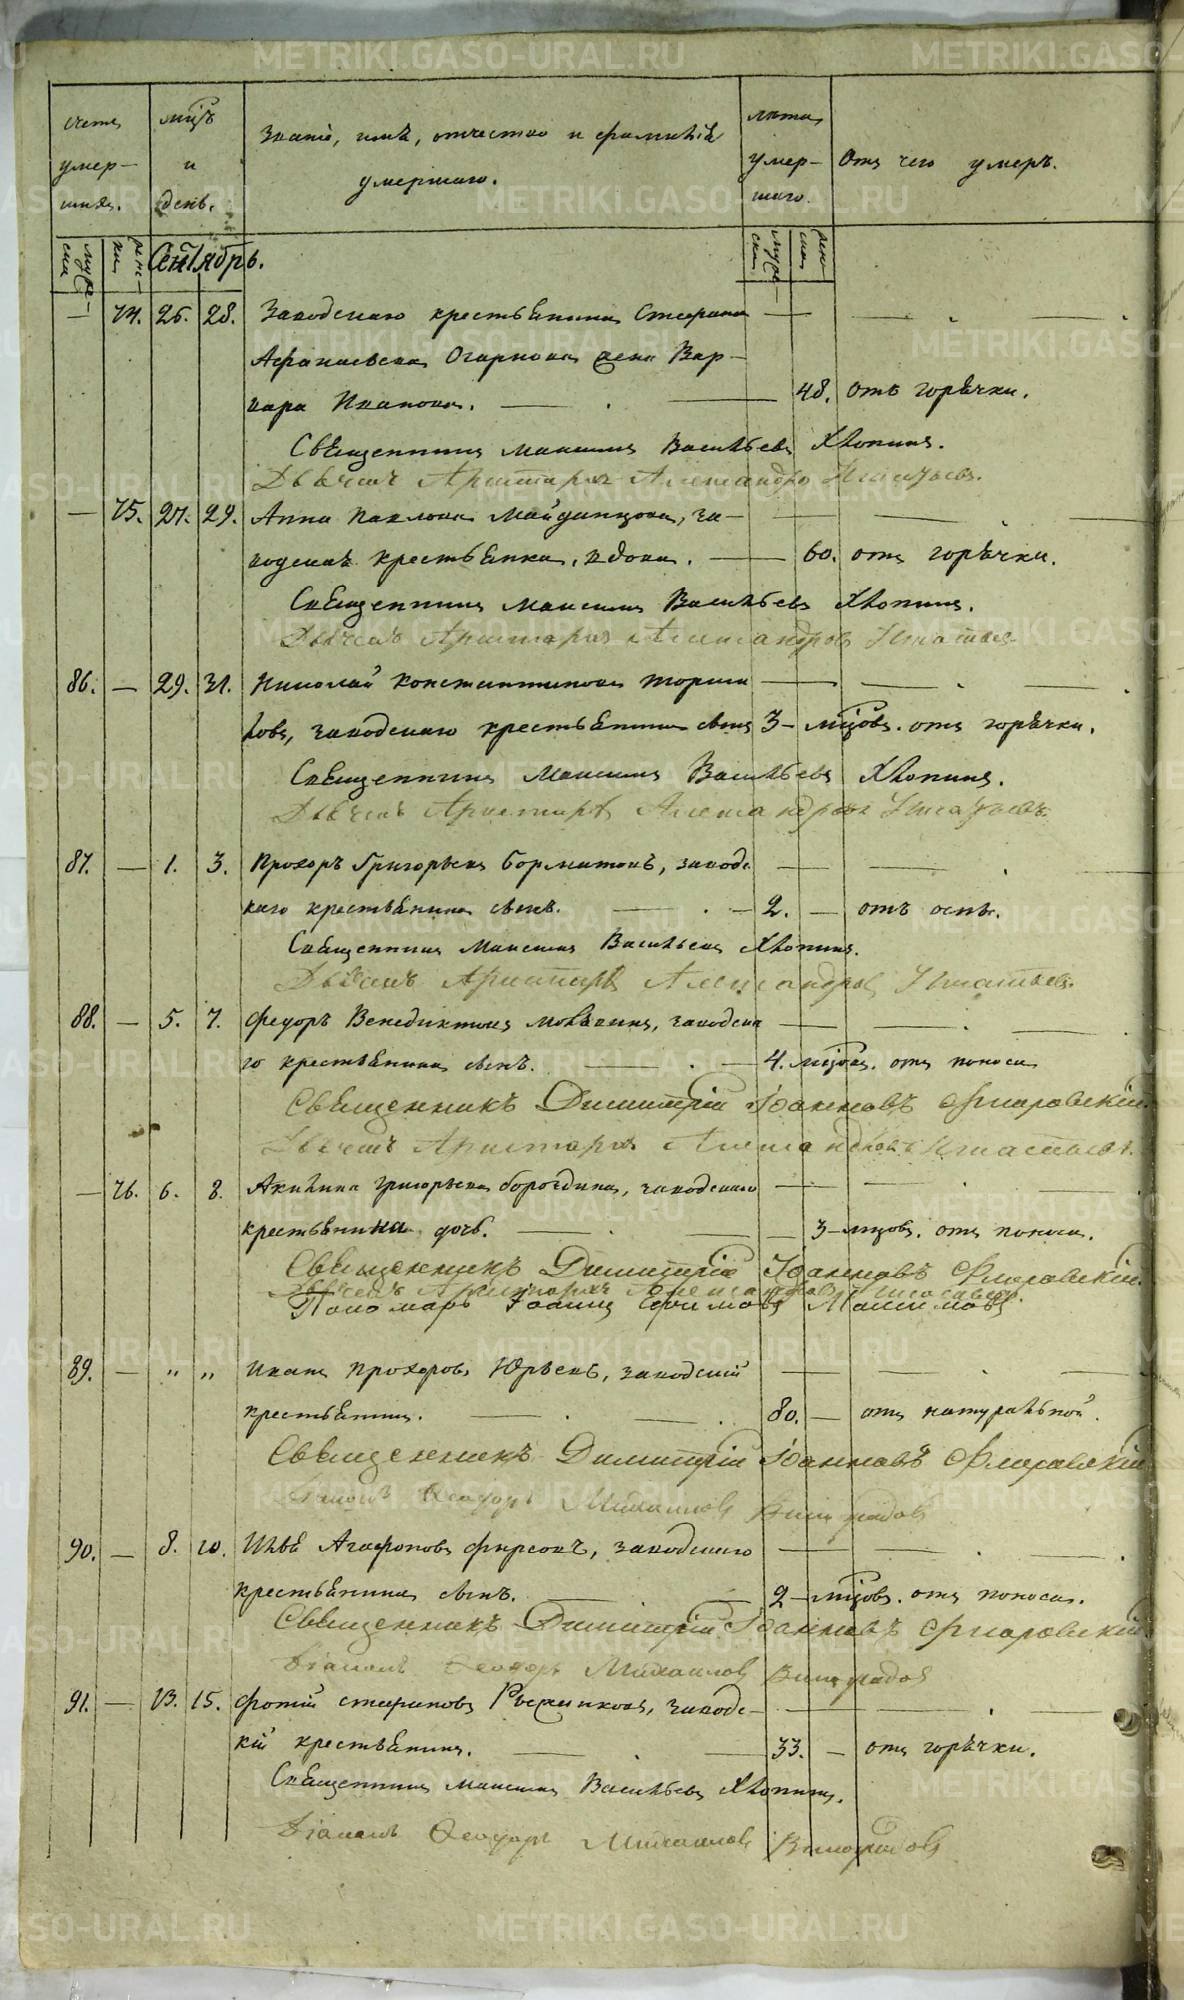 METRIKI.GASO-URAL.RU
Счетъ умер- шихъ.
мцъ и день.
Званіе, имя, отчество и фамилія умершаго.
лѣта умер- шаго.
Отъ чего умеръ.
муже- ска
женс- ка
Сентябрь.
муже- ска
жен- ска
— 74. 26. 28. Заводскаго крестьянина Стефана
Афанасьева Огаркова жена Вар-
вара Иванова. 48. отъ горячки.
Священникъ Максимъ Васильевъ Хлопинъ.
Дьячекъ Аристархъ Александровъ Игнатьевъ.
— 75. 27. 29. Анна Павлова Майданцова, за-
водская крестьянка, вдова. 60. отъ горячки.
Священникъ Максимъ Васильевъ Хлопинъ.
Дьячекъ Аристархъ Александровъ Игнатьевъ
86. — 29. 31. Николай Константиновъ
ловъ, заводскаго крестьянина сынъ 3 - мцовъ. отъ горячки.
Священникъ Максимъ Васильевъ Хлопинъ.
Дьячекъ Аристархъ Александровъ Игнатьевъ.
87. — 1. 3. Прохоръ Григорьевъ Бормотовъ, заводс
каго крестьянина сынъ. 2. — отъ оспы.
Священникъ Максимъ Васильевъ Хлопинъ.
Дьячекъ Аристархъ Александровъ Игнатьевъ.
88. — 5. 7. Федоръ Венедиктовъ заводска
го крестьянина сынъ. 4. мцовъ. отъ поноса
Священникъ Димитрій Іоанновъ Флоровскій.
Дьячекъ Аристархъ Александровъ Игнатьевъ.
— 76. 6. 8. Акилина Григорьева Бороздина, заводскаго
крестьянина дочь. 3 - мцовъ. отъ поноса.
Священникъ Димитрій Іоанновъ Флоровскій.
Дьячекъ Аристархъ Александровъ Игнатьевъ.
Пономарь Іоаннъ Ефимовъ Максимовъ
89. — " " Иванъ Прохоровъ Юрьевъ, заводскій
крестьянинъ. 80. — отъ натуральной.
Священникъ Димитрій Іоанновъ Флоровскій
Діаконъ Феодоръ Михаиловъ Виноградовъ
90. — 8. 10. Илья Агафоновъ Фирсовъ, заводскаго
крестьянина сынъ. 2 - мцовъ. отъ поноса.
Священникъ Димитрій Іоанновъ Флоровскій
Діаконъ Феодоръ Михаиловъ Виноградовъ
91. — 13. 15. Фотій Стефановъ заводс-
кій крестьянинъ. 33. — отъ горячки.
Священникъ Максимъ Васильевъ Хлопинъ.
Діаконъ Феодоръ Михаиловъ Виноградовъ